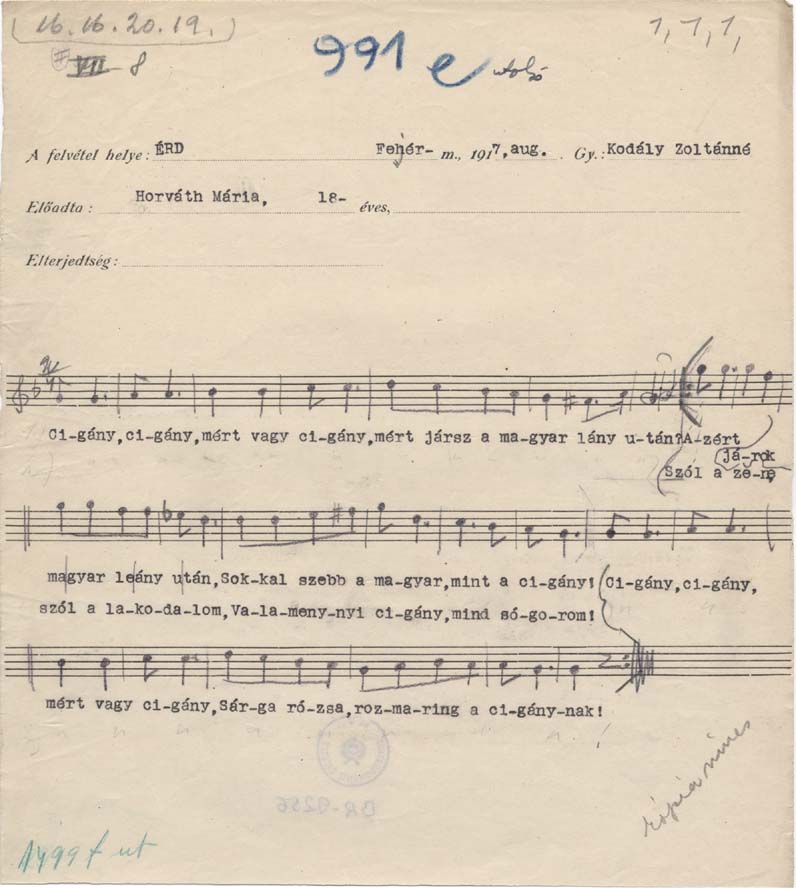 (16. 16. 20. 19.)
1, 1, 1,
VII 8
991 e utolsó
A felvétel helye: ÉRD Fehér- m., 1917, aug. Gy.: Kodály Zoltánné
Előadta: Horváth Mária, 18- éves,
Elterjedtség:
Ci-gány,ci-gány,mért vagy ci-gány,mért jársz a ma-gyar lány u-tán?A-zért
já-rok
Szól a ze-ne,
magyar leány után,Sok-kal szebb a ma-gyar,mint a ci-gány! Ci-gány,ci-gány,
szól a la-ko-da-lom,Va-la-meny-nyi ci-gány,mind só-go-rom!
mért vagy ci-gány,Sár-ga ró-zsa,roz-ma-ring a ci-gány-nak!
BR-9256
kópia nincs
1499 f ut